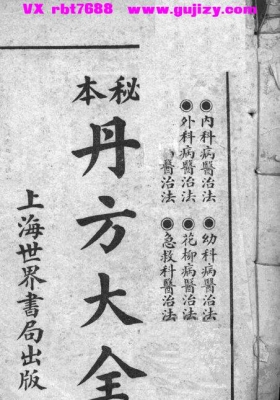 VX rbt7688 www.gujizy.com
◉內科病醫治法
◉幼科病醫治法
◉外科病醫治法
◉花柳病醫治法
◉醫治法
◉急救科醫治法
秘本
丹方大全
上海世界書局出版